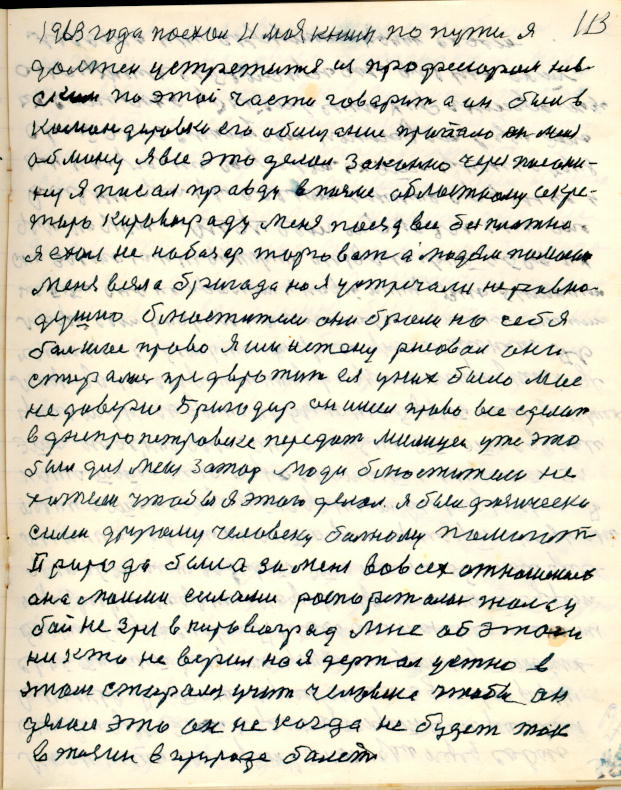 113
1963 года поехал и моя книга по пути я
должен устретится из профессором нев-
ским по этой части говарит а он был в
командировки его обещание пропало он мене
обману я все это делал законно через писани-
ну я писал правду в писме областному секре-
тарю Кировограду меня поезд вес бесплатно
я ехал не на базар торговат а людям помогат
меня взяла бригада но я устречали не равно-
душно блюстители они брали на себя
балшое право я им истену рисовал они
старалис предвротит ея у них было мне
не доверие Бригадир он имел право все сделат
в днепропетровске передат милицеи уже это
был для мене затор люди блюстители не
хотели чтобы я этого делал. я был физически
силен другому человеку балному помогат
Природа была за мене вовсех отношениях
она моими силами роспоряжалас жалку
бай не зря в кировоград мне об этом
ни кто не верил но я держал устно в
этом старался учит человека чтобы он
делал это он не когда не будет так
в жизни в природе болет